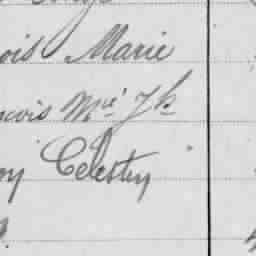 ois Marie
ncois Mie Jh
oy Celestin